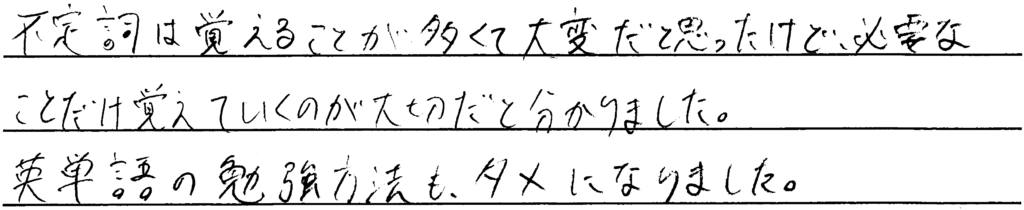 不定詞は覚えることが多くて大変だと思ったけど、必要な
ことだけ覚えていくのが大切だと分かりました。
英単語の勉強方法も、タメになりました。